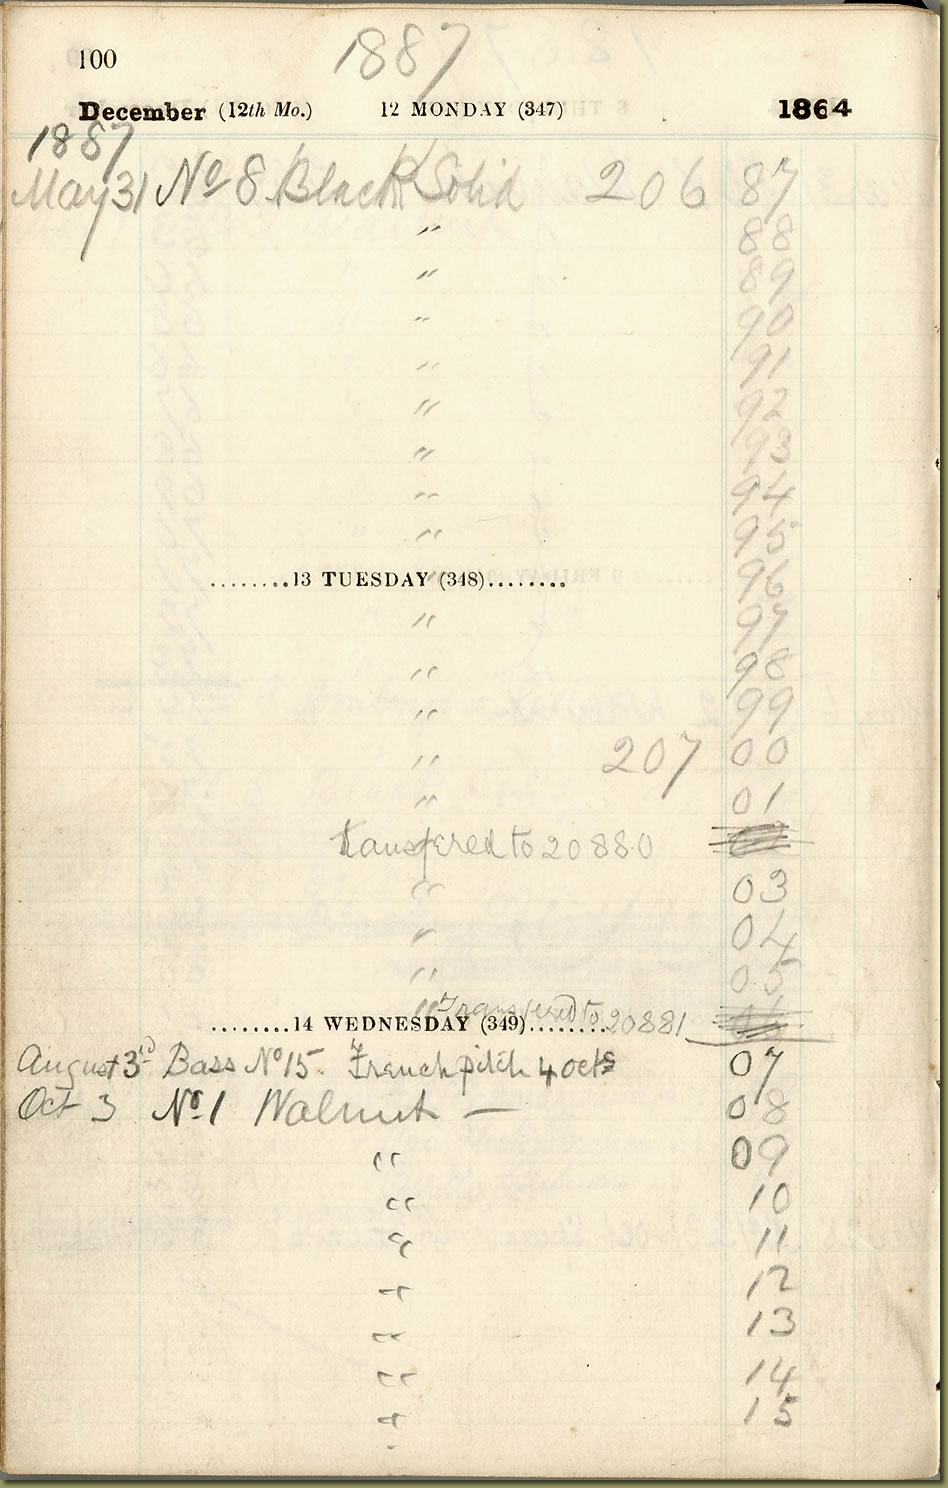 100
1887
December (12th Mo.) 12 MONDAY (347) 1864
1887
May 31 No 8 Black Solid 206 87
" 88
" 89
" 90
" 91
" 92
" 93
" 94
" 95
........13 TUESDAY (348)........ 96
" 97
" 98
" 99
" 207 00
" 01
transfered to 20880
" 03
" 04
" 05
" Transfered to 20881
........14 WEDNESDAY (349)........
August 3rd Bass No 15. French pitch 4 octs 07
Oct 3 No 1 Walnut — 08
" 09
" 10
" 11
" 12
" 13
" 14
" 15